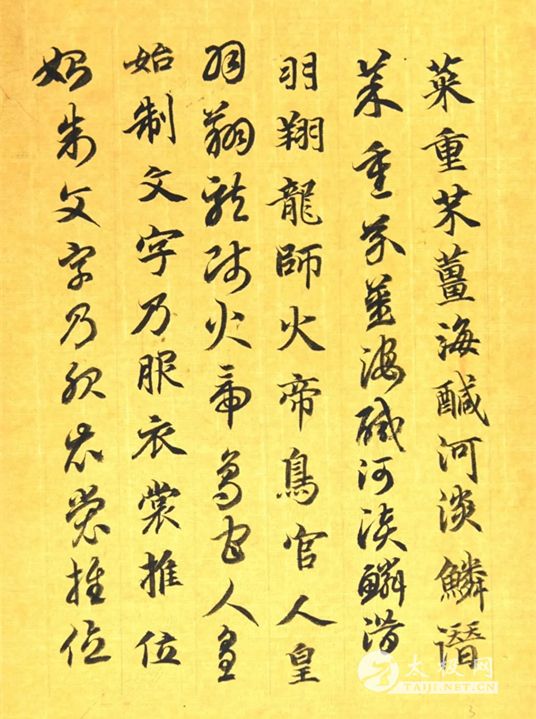 菜重芥薑海醎河淡鱗潛
菜重芥薑海醎河淡鱗潛
羽翔龍師火帝鳥官人皇
羽翔龍師火帝鳥官人皇
始制文字乃服衣裳推位
始制文字乃服衣裳推位
太极网
TAIJI.NET.CN
3